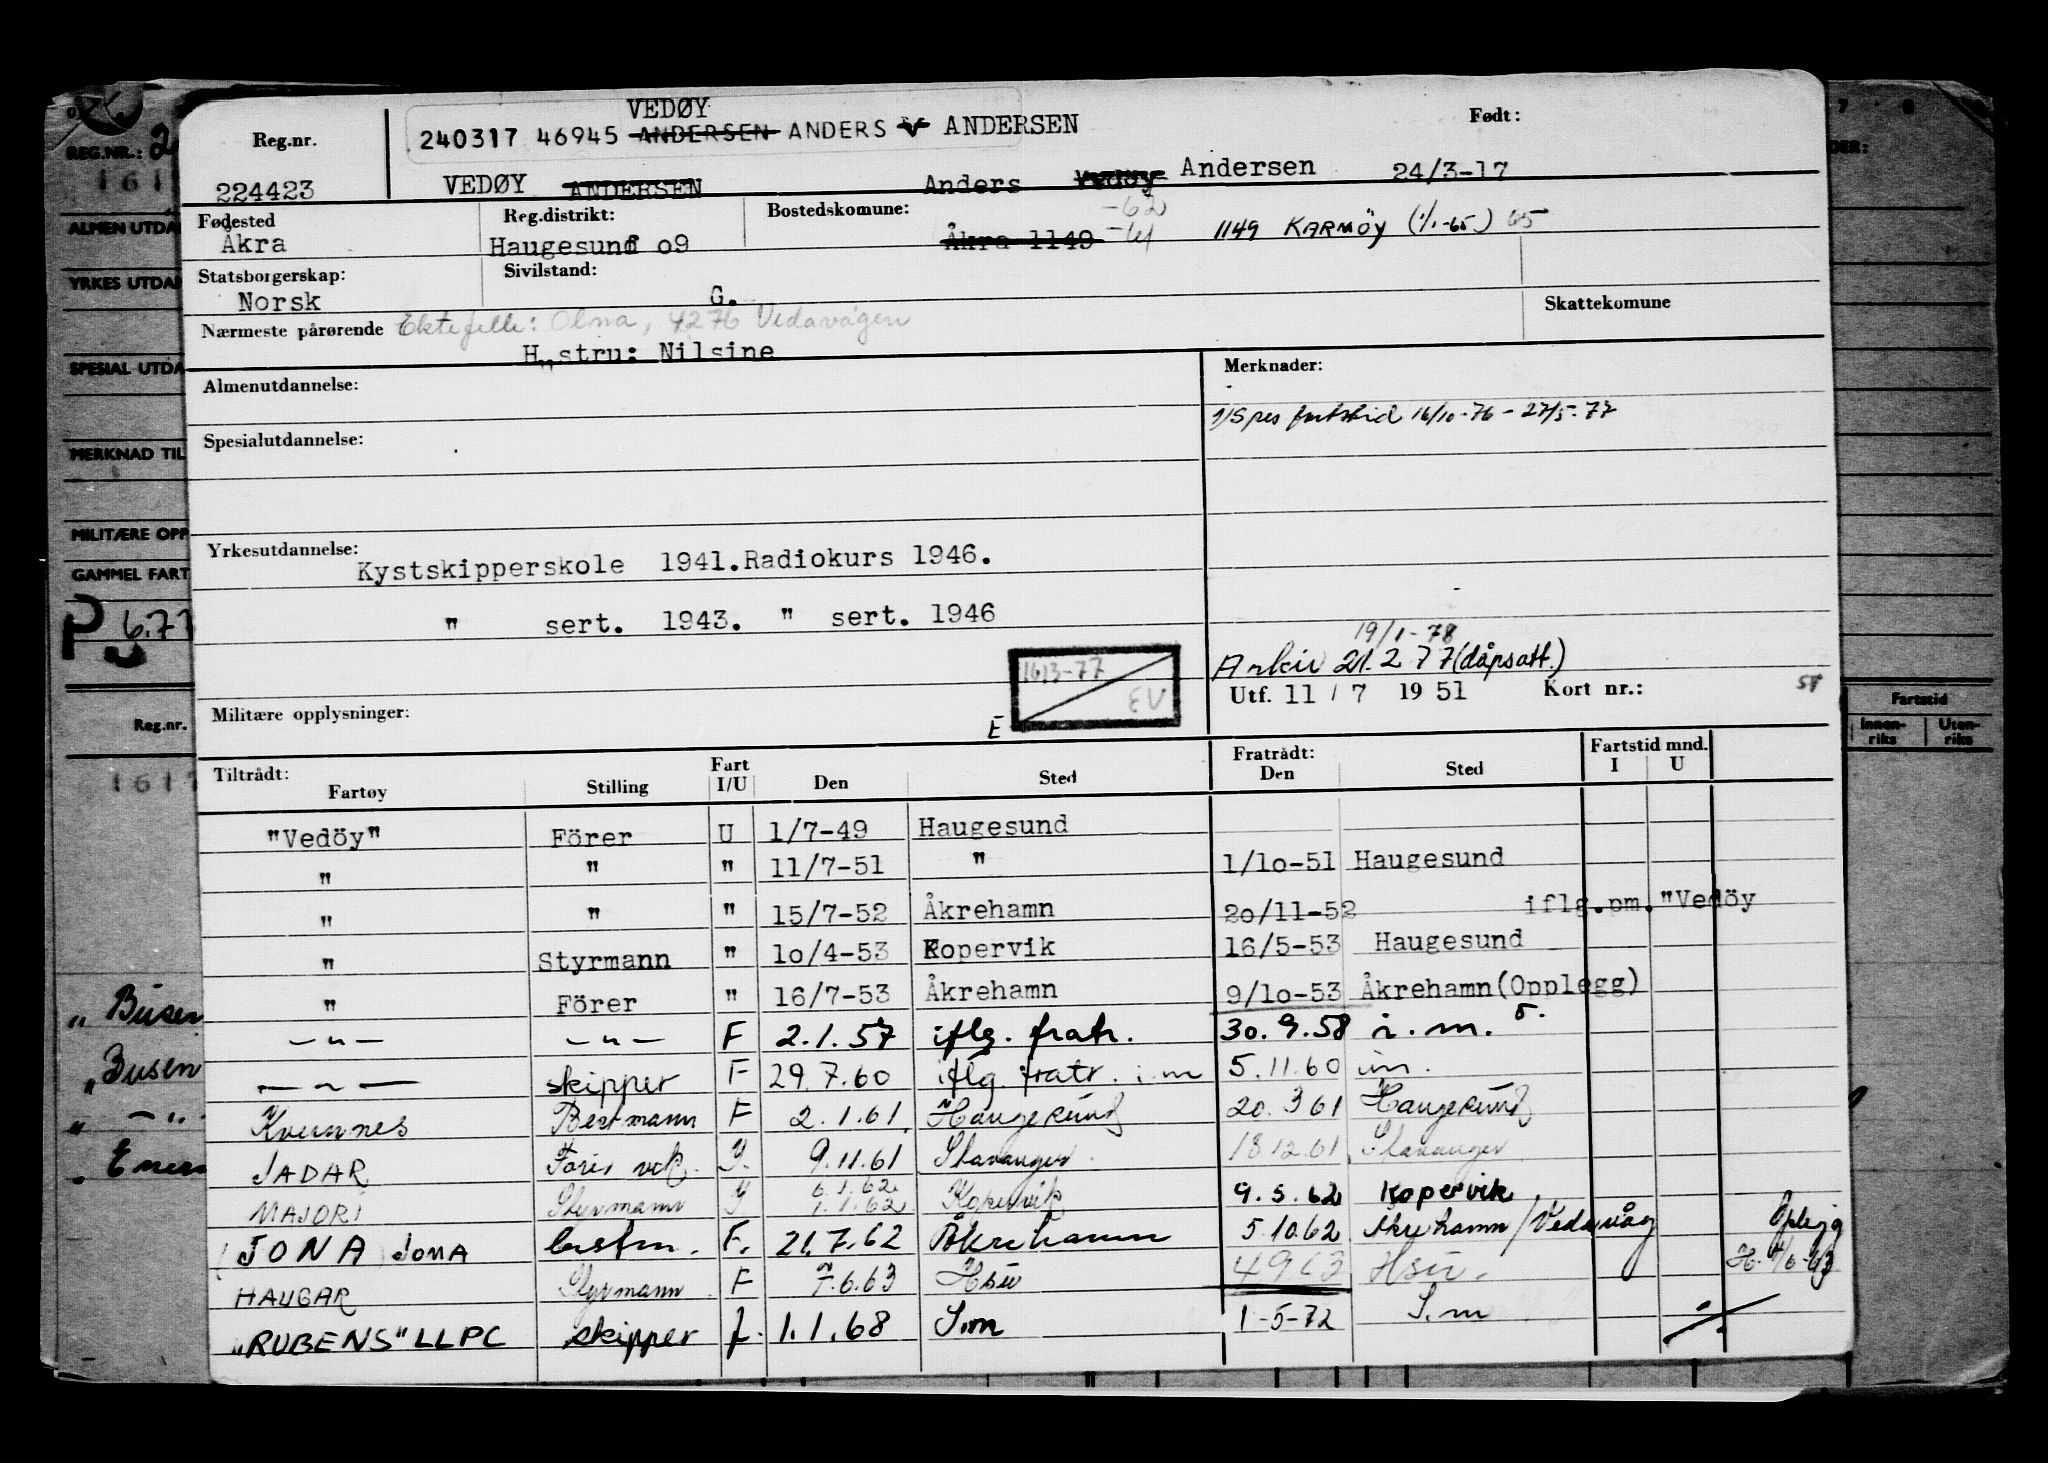 VEDØY
Reg.nr. 240317 46945 ANDERSEN ANDERS V ANDERSEN Født:
224423 VEDØY ANDERSEN Anders Vedöy Andersen 24/3-17
Fødested Reg.distrikt: Bostedskomune: -62
Åkra Haugesund o9 Åkra 1149 -61 1149 KARMÖY (1/1-65) 65
Statsborgerskap: Sivilstand:
Norsk G. Skattekomune
Nærmeste pårørende Ektefelle: Olna, 4276 Vedavågen
H,,stru: Nilsine
Almenutdannelse: Merknader:
Spes fartstid 16/10-76 - 27/5-77
Spesialutdannelse:
Yrkesutdannelse:
Kystskipperskole 1941. Radiokurs 1946.
" sert. 1943. " sert. 1946
1613-77 EV
19/1-78
Arkiv 21.2 77 (dåpsatt.)
Utf. 11 / 7 1951 Kort nr.: 58
Militære opplysninger: E
Tiltrådt: Fart Fratrådt: Fartstid mnd.
Fartøy Stilling I/U Den Sted Den Sted I U
"Vedöy" Förer U 1/7-49 Haugesund
" " " 11/7-51 " 1/lo-51 Haugesund
" " " 15/7-52 Åkrehamn 2o/11-52 iflg.pm. "Vedöy
" Styrmann " lo/4-53 Kopervik 16/5-53 Haugesund
" Förer " 16/7-53 Åkrehamn 9/lo-53 Åkrehamn(Opplegg)
—"— —"— F 2.1.57 iflg. fratr. 30.9.58 i.m.
—"— skipper F 29.7.60 iflg. fratr. i.m 5.11.60 im.
Kvunnes Bestmann F 2.1.61. Haugesund 20.3 61 Haugesund
JADAR 9.11.61 Stavanger 18.12.61 Stavanger
MAJORI Styrmann 6.1.62 1.1.62 Kopervik 9.5.62 Kopervik
JONA JONA bestm. F. 21.7.62 Åkrehamn 5.10.62 Åkrehamn/Vedavåg Oplegg
HAUGAR Styrmann F 7.6.63 Hsu 4963 Hsu. H. 4/6-63
"RUBENS" LLPC skipper f. 1.1.68 S.m 1-5-72 S.m
REG.NR.: 2
161
ALMEN UTDA
YRKES UTDAN
SPESIAL UTDA
MERKNAD TIL
MILITÆRE OPP
GAMMEL FART
P 6.77
Reg.nr.
1617
" Busen
" Busen
" — " .
" Enern
7 8
DER:
Fartstid
Innen-riks Uten-riks